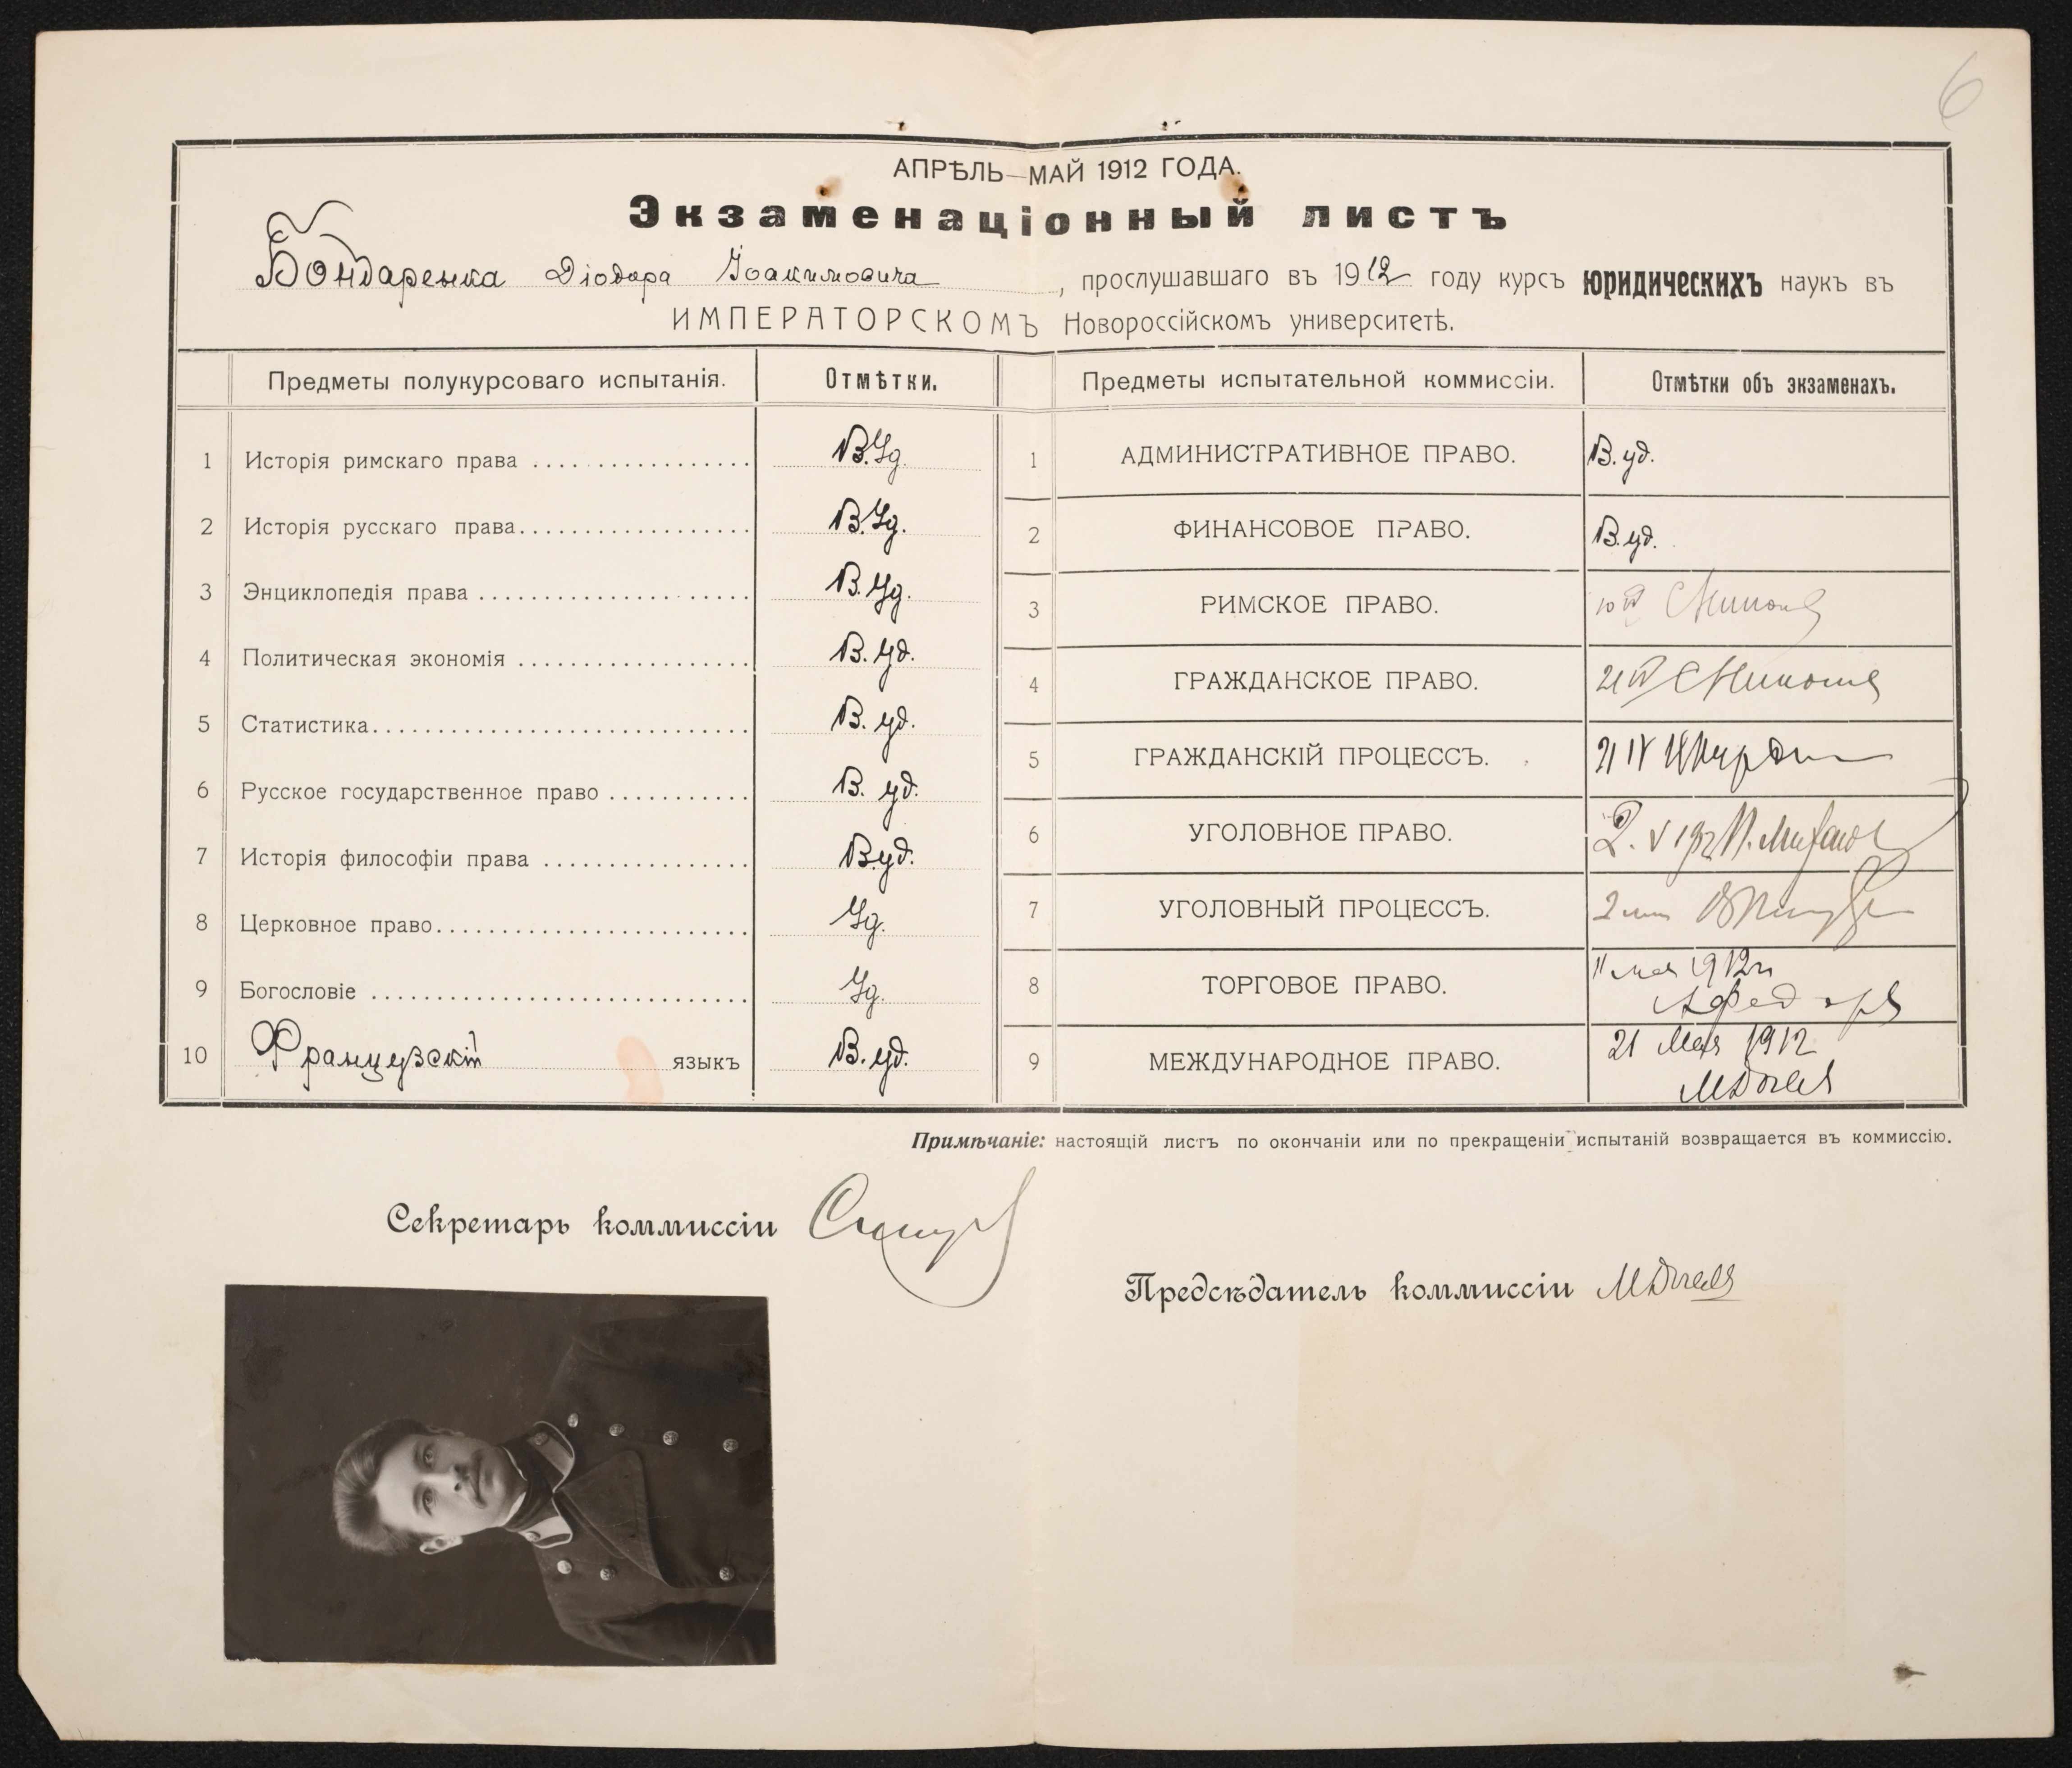 6
АПРѢЛЬ—МАЙ 1912 ГОДА.
Экзаменаціонный листъ
Бондаренка Діодора Іоакимовича, прослушавшаго въ 1912 году курсъ юридическихъ наукъ въ
ИМПЕРАТОРСКОМЪ Новороссійскомъ университетѣ.
Предметы полукурсоваго испытанія. Отмѣтки. Предметы испытательной коммиссіи. Отмѣтки объ экзаменахъ.
1 Исторія римскаго права В.Уд. 1 АДМИНИСТРАТИВНОЕ ПРАВО. В.уд.
2 Исторія русскаго права В.Уд. 2 ФИНАНСОВОЕ ПРАВО. В.уд.
3 Энциклопедія права В.Уд. 3 РИМСКОЕ ПРАВО.
4 Политическая экономія В.Уд. 4 ГРАЖДАНСКОЕ ПРАВО.
5 Статистика В. уд. 5 ГРАЖДАНСКІЙ ПРОЦЕССЪ. 21 IV
6 Русское государственное право В. уд. 6 УГОЛОВНОЕ ПРАВО. 2. V
7 Исторія философіи права В.уд. 7 УГОЛОВНЫЙ ПРОЦЕССЪ.
8 Церковное право Уд. 8 ТОРГОВОЕ ПРАВО. 11 мая 1912 г.
9 Богословіе Уд. 9 МЕЖДУНАРОДНОЕ ПРАВО. 21 Мая 1912
10 Французскій языкъ В.уд.
Примѣчаніе: настоящій листъ по окончаніи или по прекращеніи испытаній возвращается въ коммиссію.
Секретарь коммиссіи
Предсѣдатель коммиссіи